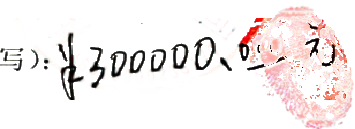 写):¥300000、00元